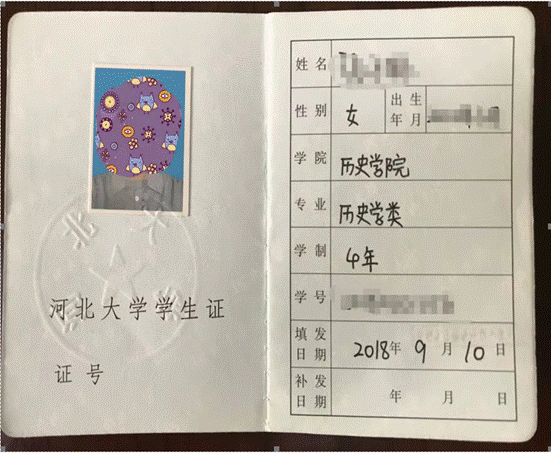 河北大学学生证
证号
姓名
性别 女 出生年月
学院 历史学院
专业 历史学类
学制 4年
学号
填发日期 2018年 9月 10日
补发日期 年 月 日